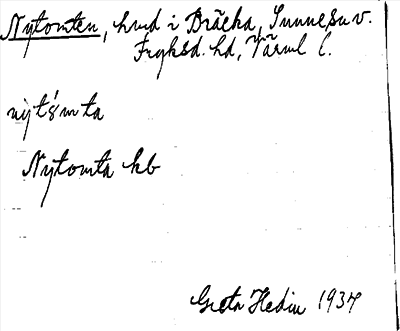 Nytomten, hmd i Bräcka, Sunne sn v.
Fryksd. hd, Värml l.
nỳtómta
Nytomta kb
Greta Hedin 1937